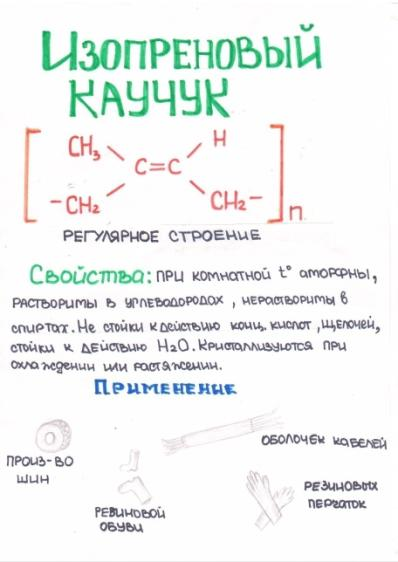 Изопреновый
каучук
CH₃ H
C=C
-CH₂ CH₂- n
Регулярное строение
Свойства: при комнатной t° аморфны,
растворимы в углеводородах, нерастворимы в
спиртах. Не стойки к действию конц. кислот, щелочей,
стойки к действию H₂O. Кристаллизуются при
охлаждении или растяжении.
Применение
Оболочек кабелей
Произ-во
шин
Резиновых
перчаток
Резиновой
обуви